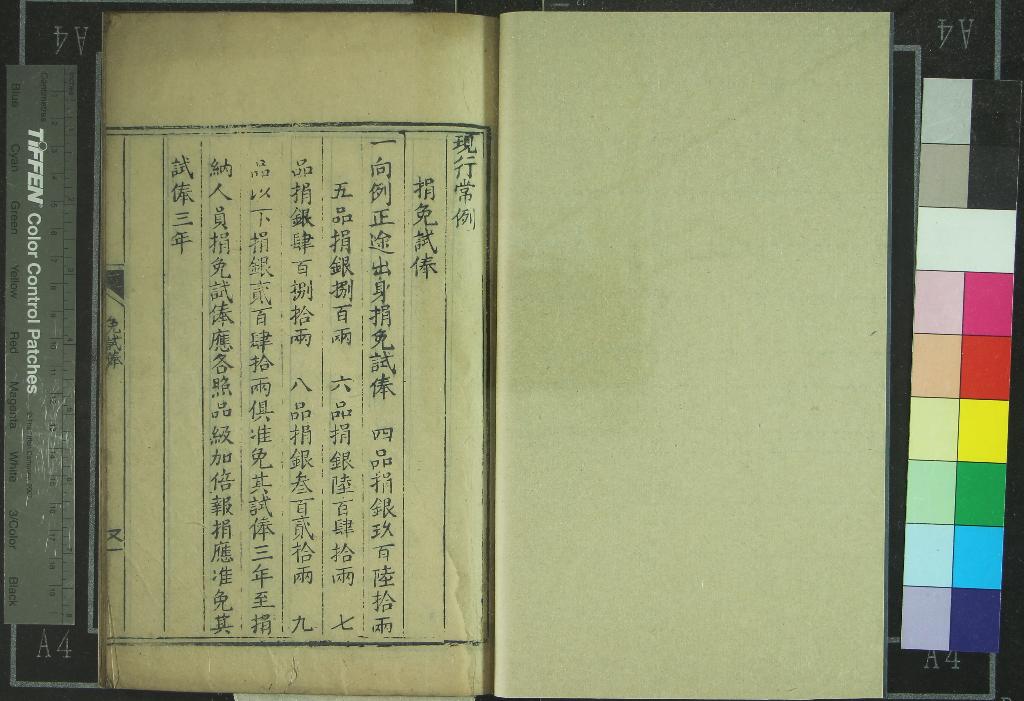 現行常例
捐免試俸
一向例正途出身捐免試俸 四品捐銀玖百陸拾兩
五品捐銀捌百兩 六品捐銀陸百肆拾兩 七
品捐銀肆百捌拾兩 八品捐銀叁百貳拾兩 九
品以下捐銀貳百肆拾兩俱准免其試俸三年至捐
納人員捐免試俸應各照品級加倍報捐應准免其
試俸三年
免試俸
又一
TIFFEN Color Control Patches
Blue
Cyan
Green
Yellow
Red
Magenta
White
3/Color
Black
Centimetres
A4
A4
A4
A4